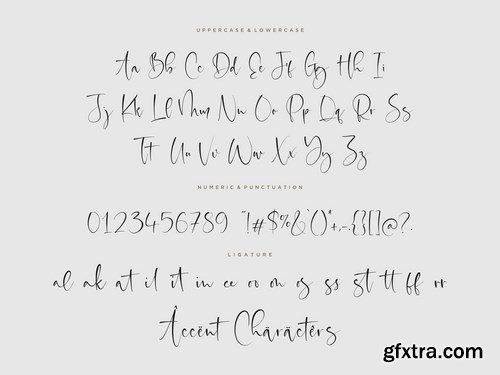 UPPERCASE & LOWERCASE
Aa Bb Cc Dd Ee Ff Gg Hh Ii
Jj Kk Ll Mm Nn Oo Pp Qq Rr Ss
Tt Uu Vv Ww Xx Yy Zz
NUMERIC & PUNCTUATION
0123456789 "!#$%&'()*+,-.{}[]@?.
LIGATURE
al ak at il it in ee oo on os ss st tt ff rr
Âccënt Chäräctêrs
gfxtra.com